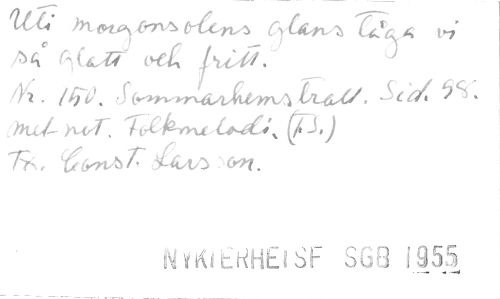 Uti morgonsolens glans tåga vi
så glatt och fritt.
Nr. 150. Sommarhemstrall. Sid. 98.
met not. Folkmelodi. (T.S.)
Tx. Const. Larsson.
NYKTERHETSF SGB 1955